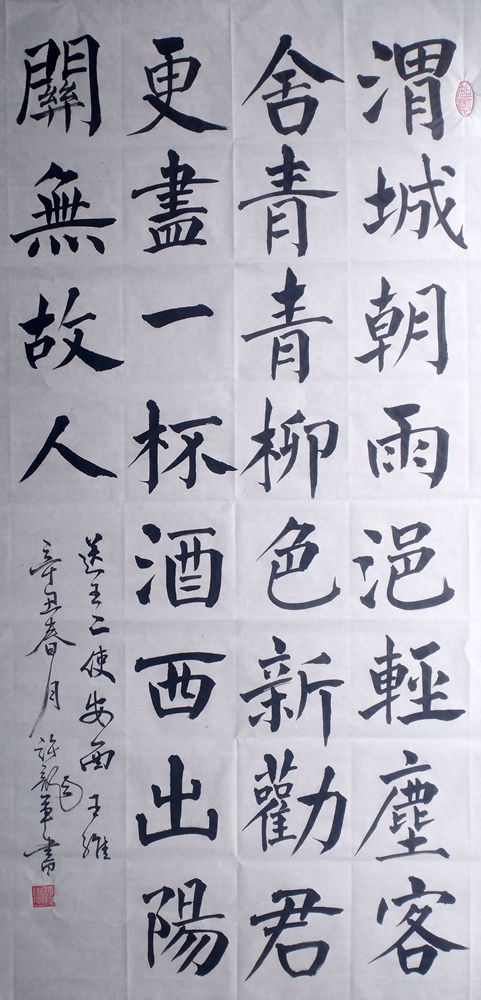 渭城朝雨浥輕塵客
舍青青柳色新勸君
更盡一杯酒西出陽
關無故人
送王二使安西王維
辛丑春月許龍軍書